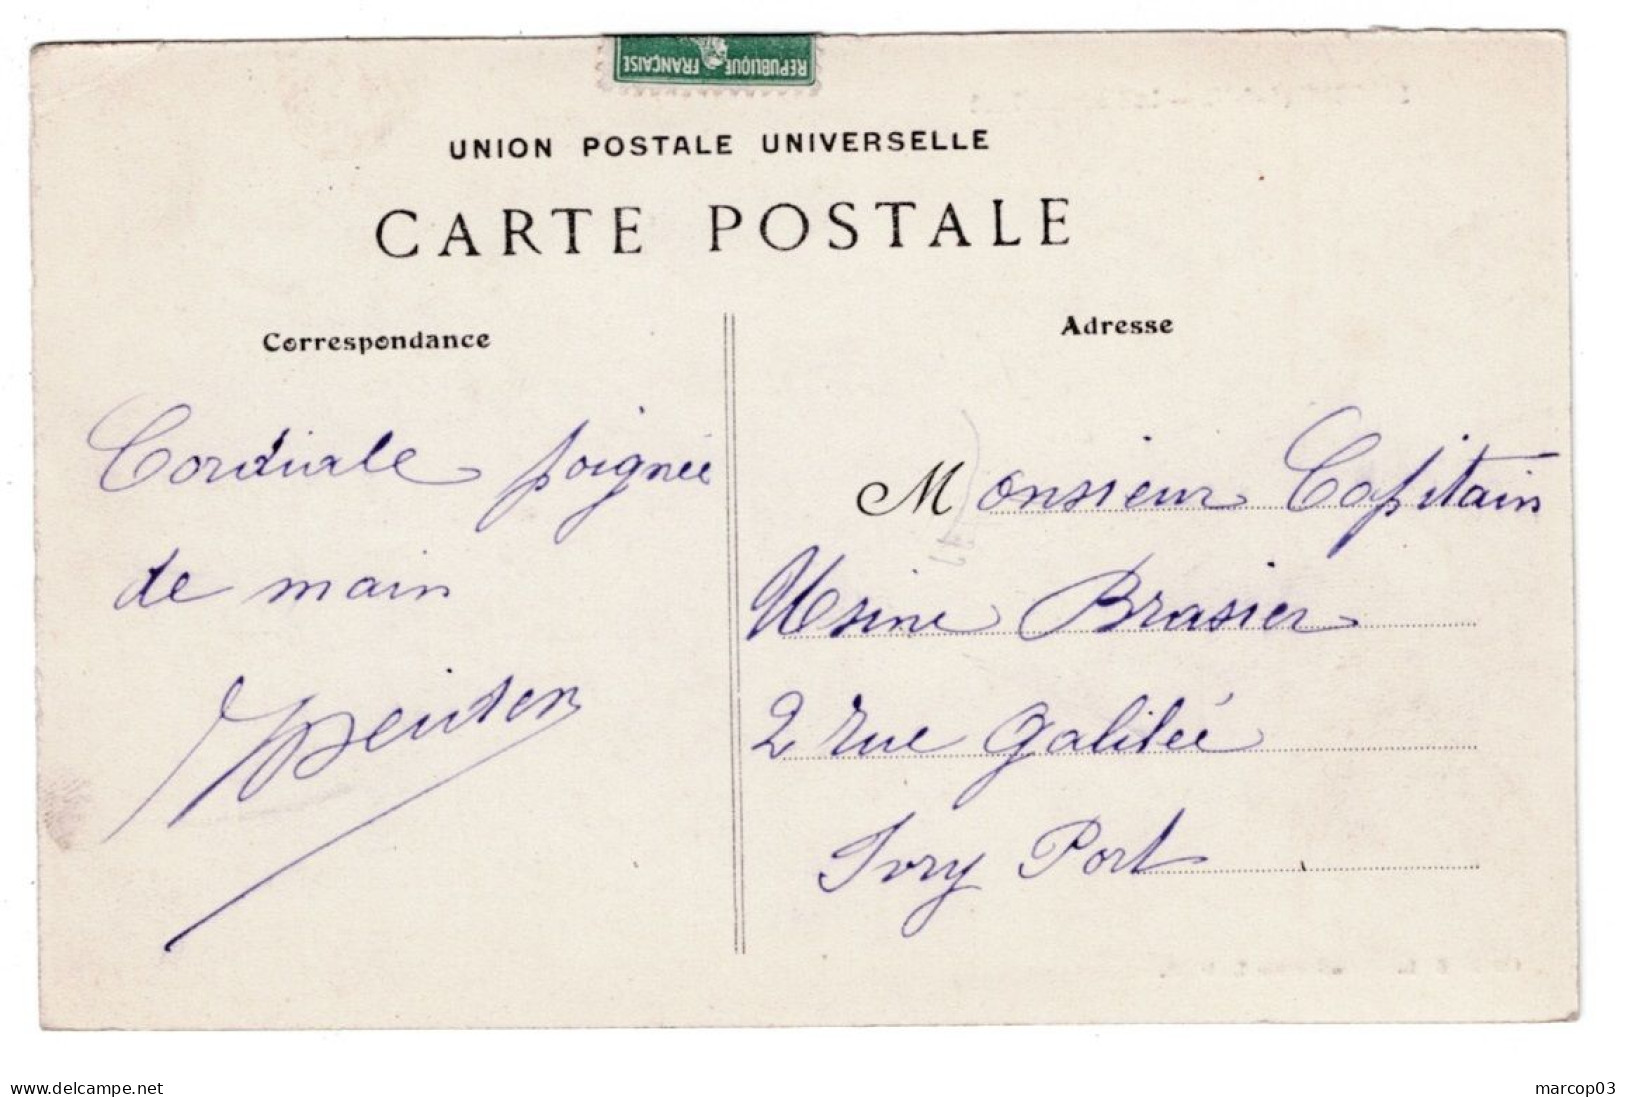 REPUBLIQUE FRANÇAISE
UNION POSTALE UNIVERSELLE
CARTE POSTALE
Correspondance
Adresse
Cordiale poignée
de main
Monsieur Capitain
Usine Brasier
2 rue Galilée
Ivry Port
www.delcampe.net
marcop03